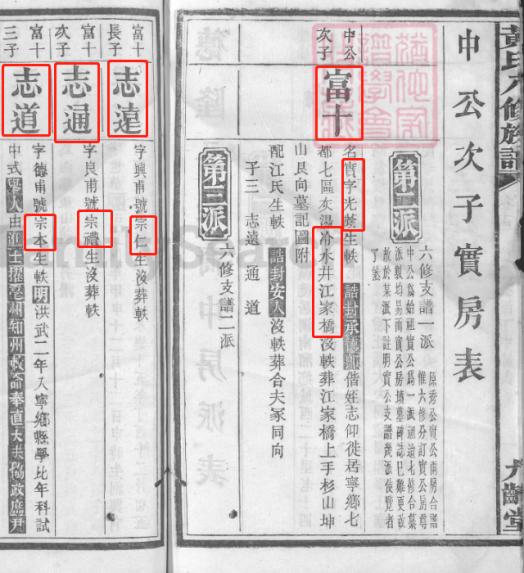 黃氏六修族譜
六齡堂
中公次子實房表
第一派
六修支譜一派
中公
次子
富十
名實字光蔡生軼 誥封承德郎偕姪志仰徙居寧鄉七
都七區灰湯冷水井江家橋沒軼葬江家橋上手杉山坤
山艮向墓記圖附
配江氏生軼 誥封安人沒軼葬合夫冢同向
子三 志遠 通 道
第二派
六修支譜二派
富十
長子
志遠
字興甫號宗仁生沒葬軼
富十
次子
志通
字良甫號宗禮生沒葬軼
富十
三子
志道
字德甫號宗本生軼明洪武二年入寧鄉縣學比年科試
中式舉人由進士擢亳州知州敕諭奉直大夫協政庶尹